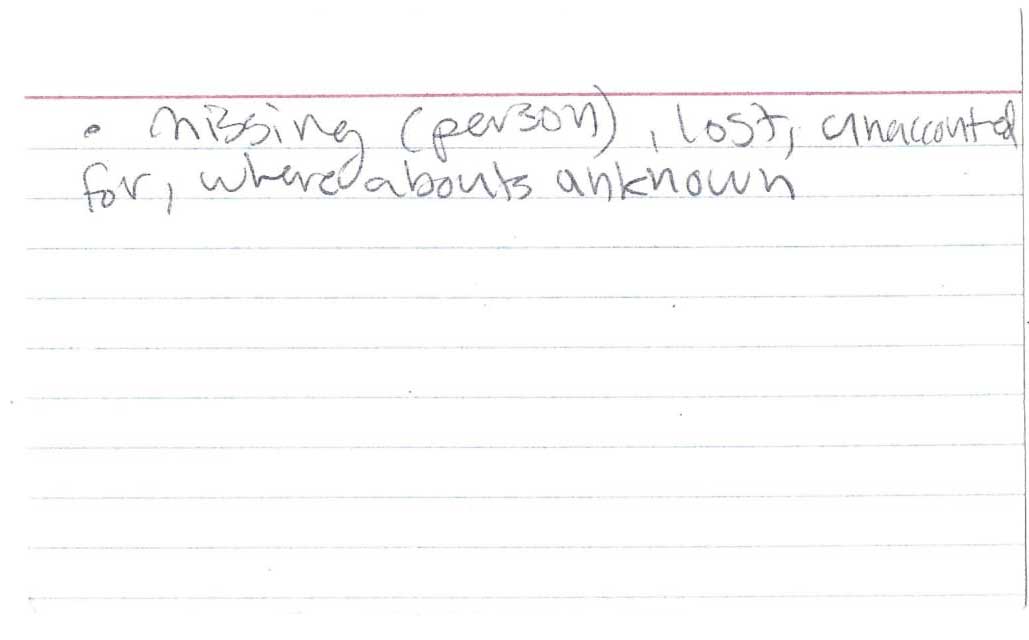 • missing (person), lost, unaccounted
for, whereabouts unknown